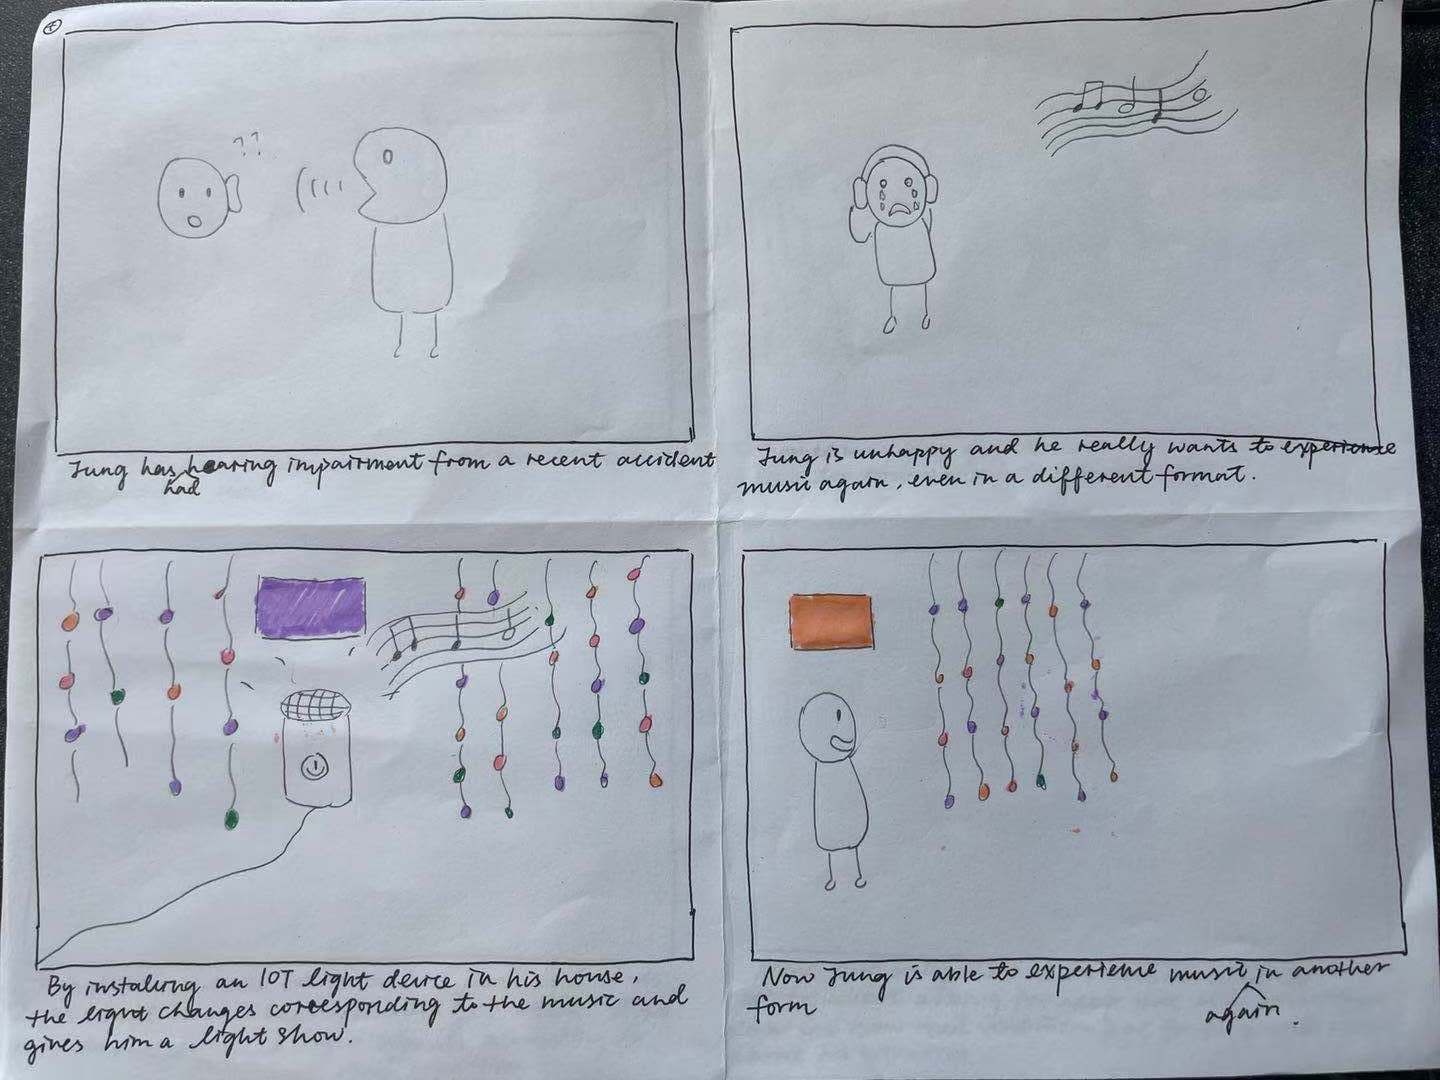 Jung has hearing impairment from a recent accident
had
Jung is unhappy and he really wants to experience
music again, even in a different format.
??
By installing an IOT light device in his house,
the light changes corresponding to the music and
gives him a light show.
Now Jung is able to experience music in another
form
again.